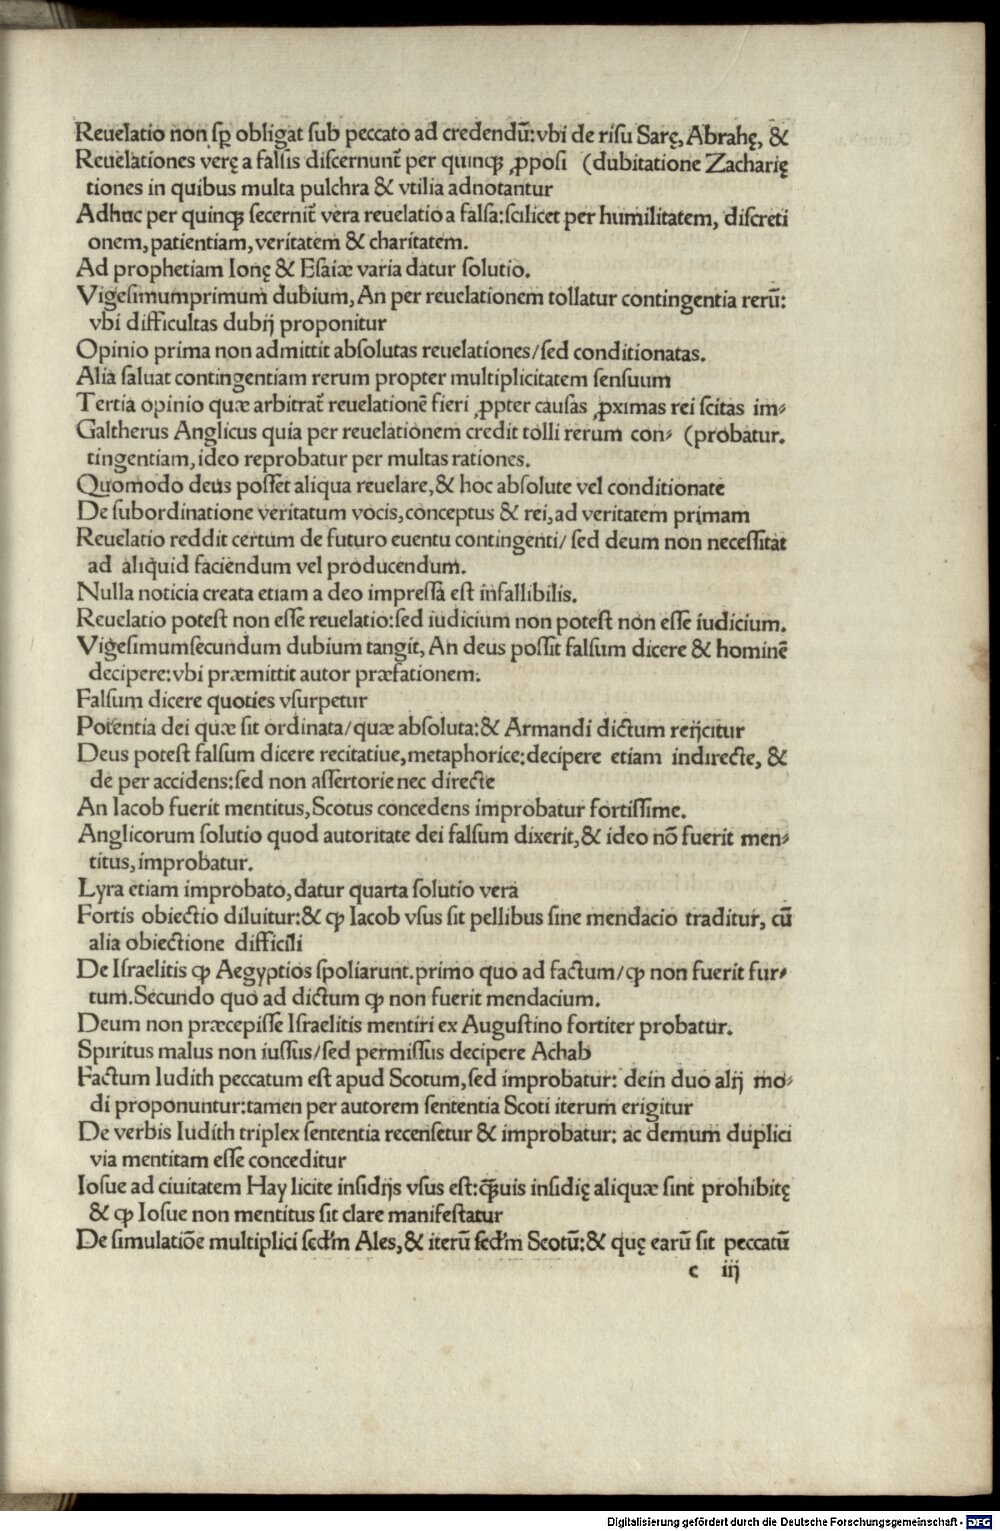 Reuelatio non sꝑ obligat sub peccato ad credendū:vbi de risu Sarę, Abrahę, &
Reuelationes verę a falsis discernunt᷑ per quinqꝫ ꝓposi (dubitatione Zacharię
tiones in quibus multa pulchra & vtilia adnotantur
Adhuc per quinqꝫ secernit᷑ vera reuelatio a falsa:scilicet per humilitatem, discreti
onem,patientiam,veritatem & charitatem.
Ad prophetiam Ionę & Esaiæ varia datur solutio.
Vigesimumprimum dubium,An per reuelationem tollatur contingentia rerū:
vbi difficultas dubij proponitur
Opinio prima non admittit absolutas reuelationes/sed conditionatas.
Alia saluat contingentiam rerum propter multiplicitatem sensuum
Tertia opinio quæ arbitrat᷑ reuelationē fieri ꝓpter causas ꝓximas rei scitas im⸗
Galtherus Anglicus quia per reuelationem credit tolli rerum con⸗ (probatur.
tingentiam,ideo reprobatur per multas rationes.
Quomodo deus posset aliqua reuelare,& hoc absolute vel conditionate
De subordinatione veritatum vocis,conceptus & rei,ad veritatem primam
Reuelatio reddit certum de futuro euentu contingenti/ sed deum non necessitat
ad aliquid faciendum vel producendum.
Nulla noticia creata etiam a deo impressa est infallibilis.
Reuelatio potest non esse reuelatio:sed iudicium non potest non esse iudicium.
Vigesimumsecundum dubium tangit, An deus possit falsum dicere & hominē
decipere:vbi præmittit autor præfationem.
Falsum dicere quoties vsurpetur
Potentia dei quæ sit ordinata/quæ absoluta:& Armandi dictum reijcitur
Deus potest falsum dicere recitatiue,metaphorice:decipere etiam indirecte, &
de per accidens:sed non assertorie nec directe
An Iacob fuerit mentitus,Scotus concedens improbatur fortissime.
Anglicorum solutio quod autoritate dei falsum dixerit,& ideo nō fuerit men⸗
titus,improbatur.
Lyra etiam improbato,datur quarta solutio vera
Fortis obiectio diluitur:& ꝙ Iacob vsus sit pellibus sine mendacio traditur, cū
alia obiectione difficili
De Israelitis ꝙ Aegyptios spoliarunt.primo quo ad factum/ꝙ non fuerit fur⸗
tum.Secundo quo ad dictum ꝙ non fuerit mendacium.
Deum non præcepisse Israelitis mentiri ex Augustino fortiter probatur.
Spiritus malus non iussus/sed permissus decipere Achab
Factum Iudith peccatum est apud Scotum,sed improbatur: dein duo alij mo⸗
di proponuntur:tamen per autorem sententia Scoti iterum erigitur
De verbis Iudith triplex sententia recensetur & improbatur: ac demum duplici
via mentitam esse conceditur
Iosue ad ciuitatem Hay licite insidijs vsus est:ꝙ̃uis insidię aliquæ sint prohibitę
& ꝙ Iosue non mentitus sit clare manifestatur
De simulatiōe multiplici scd'm Ales,& iterū scd'm Scotū:& quę earū sit peccatū
c iij
Digitalisierung gefördert durch die Deutsche Forschungsgemeinschaft - DFG